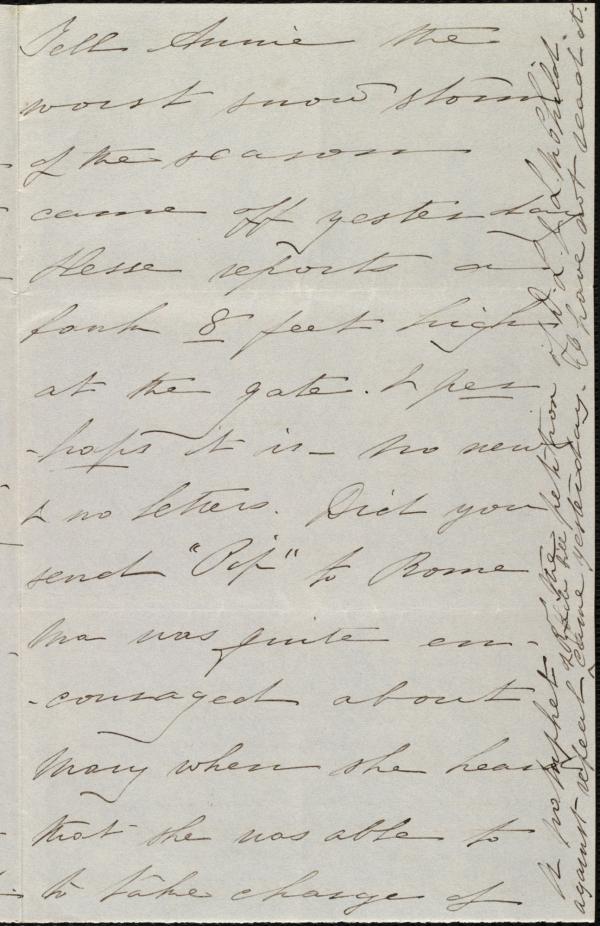 Tell Annie the
worst snow storm
of the season
came off yesterday
Hesse reports a
bank 8 feet high
at the gate. & per
-haps it is - no news
& no letters. Did you
send "Pip" to Rome
Ma was quite en-
-couraged about
Mary when she hear
that she was able to
to take charge of
A pamphlet of the petition of D. L. & L. M. Child.
against repeal came yesterday. We have not read it.